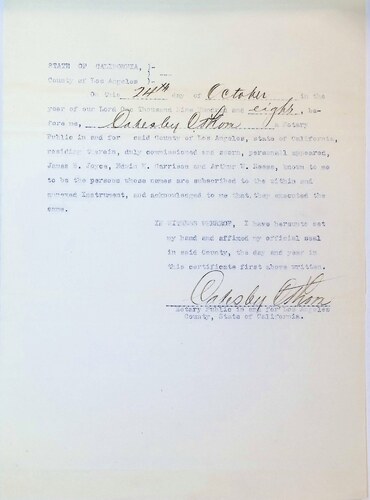 STATE OF CALIFORNIA, }--
County of Los Angeles }
On this 24th day of October in the
year of our Lord One Thousand Nine Hundred and eight, be-
fore me, Notary
Public in and for said County of Los Angeles, state of California,
residing therein, duly commissioned and sworn, personall appeared,
James S. Joyce, Edwin W. Garrison and Arthur W. known to me
to be the persons whose names are subscribed to the within and
annexed Instrument, and acknowledged to me that they executed the
same.
IN WITNESS WHEREOF, I have hereunto set
my hand and affixed my official seal
in said County, the day and year in
this certificate first above written.
Notary Public in and for Los Angeles
County, State of California.